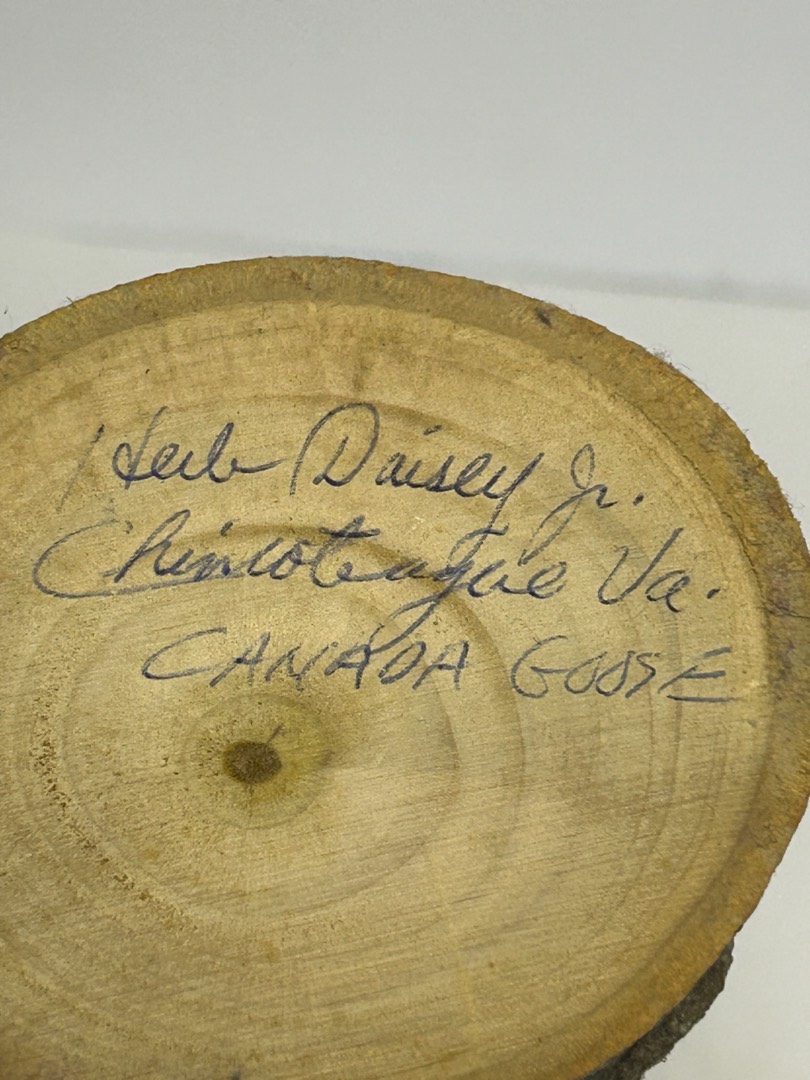 Herb Daisey Jr.
Chincoteague Va.
CANADA GOOSE